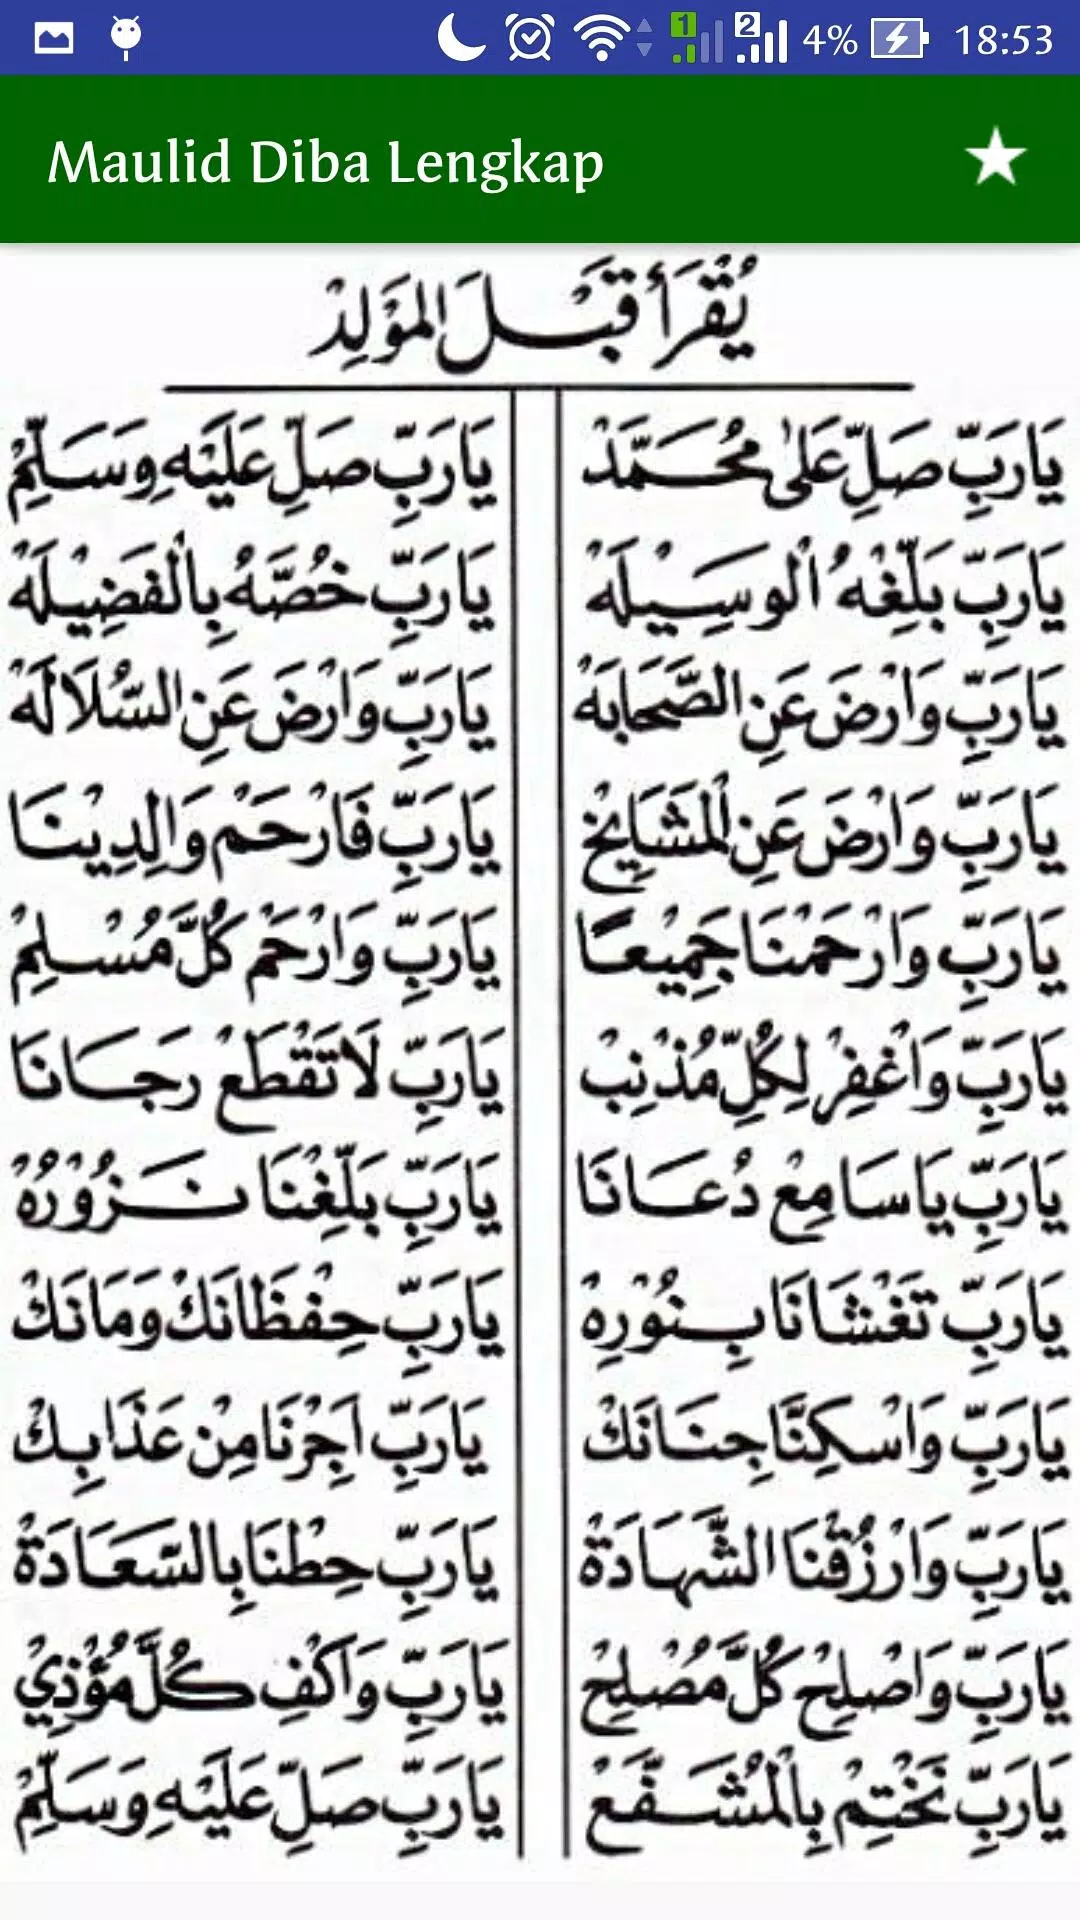 4% 18:53
Maulid Diba Lengkap
يُقْرَأُ قَبْلَ المَوْلِدْ
يَارَبِّ صَلِّ عَلىٰ مُحَمَّدْ يَارَبِّ صَلِّ عَلَيْهِ وَسَلِّمْ
يَارَبِّ بَلِّغْهُ الْوَسِيْلَهْ يَارَبِّ خُصَّهُ بِالْفَضِيْلَهْ
يَارَبِّ وَارْضَ عَنِ الصَّحَابَهْ يَارَبِّ وَارْضَ عَنِ السُّلَالَهْ
يَارَبِّ وَارْضَ عَنِ الْمَشَايِخْ يَارَبِّ فَارْحَمْ وَالِدِيْنَا
يَارَبِّ وَارْحَمْنَا جَمِيْعًا يَارَبِّ وَارْحَمْ كُلَّ مُسْلِمْ
يَارَبِّ وَاغْفِرْ لِكُلِّ مُذْنِبْ يَارَبِّ لَاتَقْطَعْ رَجَانَا
يَارَبِّ يَاسَامِعْ دُعَانَا يَارَبِّ بَلِّغْنَا نَزُوْرُهْ
يَارَبِّ تَغْشَانَا بِنُوْرِهْ يَارَبِّ حِفْظَانَكْ وَمَانَكْ
يَارَبِّ وَاسْكِنَّا جِنَانَكْ يَارَبِّ اَجِرْنَا مِنْ عَذَابِكْ
يَارَبِّ وَارْزُقْنَا الشَّهَادَةْ يَارَبِّ حِطْنَا بِالسَّعَادَةْ
يَارَبِّ وَاصْلِحْ كُلَّ مُصْلِحْ يَارَبِّ وَاكْفِ كُلَّ مُؤْذِيْ
يَارَبِّ نَخْتِمْ بِالْمُشَفَّعْ يَارَبِّ صَلِّ عَلَيْهِ وَسَلِّمْ